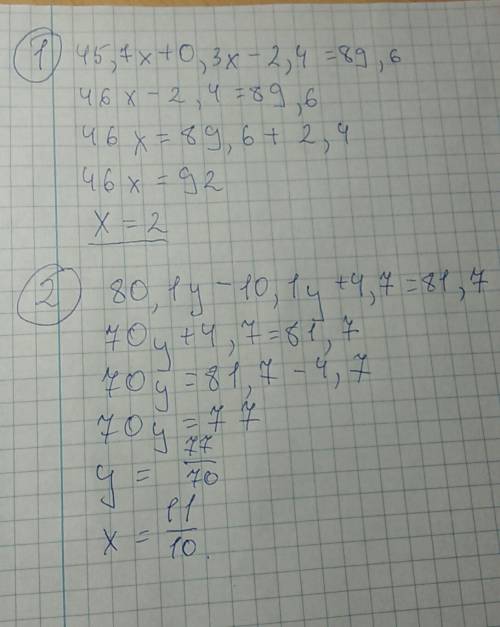 1 45,7x+0,3x-2,4=89,6
46x-2,4=89,6
46x=89,6+2,4
46x=92
x=2
2 80,1y-10,1y+4,7=81,7
70y+4,7=81,7
70y=81,7-4,7
70y=77
y = 77/70
x = 11/10.